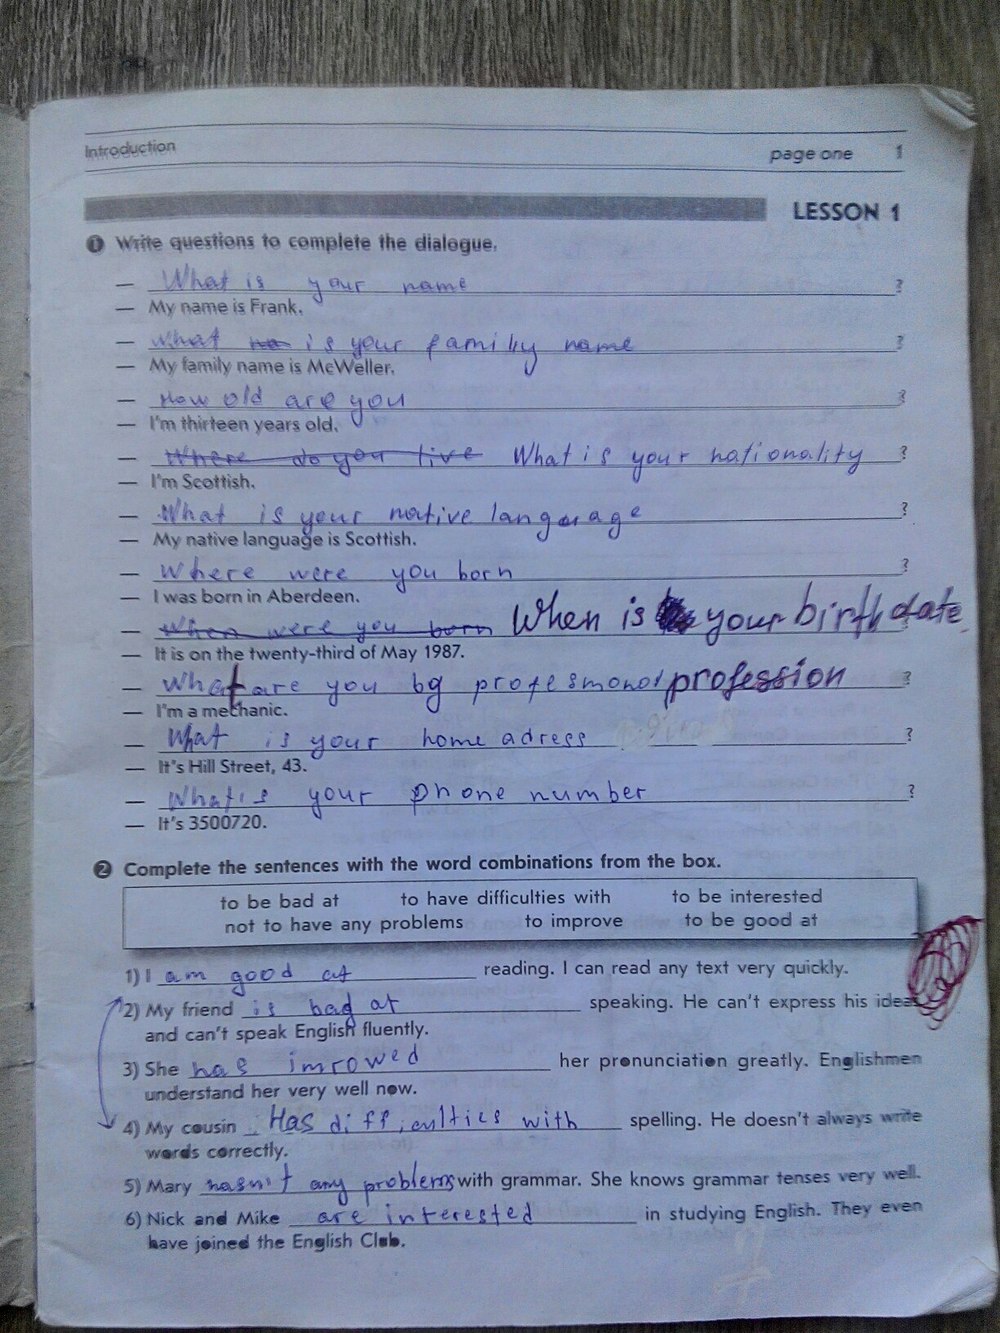 Introduction page one 1
LESSON 1
1 Write questions to complete the dialogue.
— What is your name ?
— My name is Frank.
— What is your family name ?
— My family name is McWeller.
— How old are you ?
— I'm thirteen years old.
— Where do you live What is your nationality ?
— I'm Scottish.
— What is your native langarage ?
— My native language is Scottish.
— Where were you born ?
— I was born in Aberdeen.
— When were you born When is your birth date
— It is on the twenty-third of May 1987.
— What are you by profession ?
— I'm a mechanic.
— What is your home adress ?
— It's Hill Street, 43.
— What is your phone number ?
— It's 3500720.
2 Complete the sentences with the word combinations from the box.
to be bad at to have difficulties with to be interested
not to have any problems to improve to be good at
1) I am good at reading. I can read any text very quickly.
2) My friend is bad at speaking. He can't express his ideas
and can't speak English fluently.
3) She has imrowed her pronunciation greatly. Englishmen
understand her very well now.
4) My cousin Has difficulties with spelling. He doesn't always write
words correctly.
5) Mary hasn't any problems with grammar. She knows grammar tenses very well.
6) Nick and Mike are interested in studying English. They even
have joined the English Club.